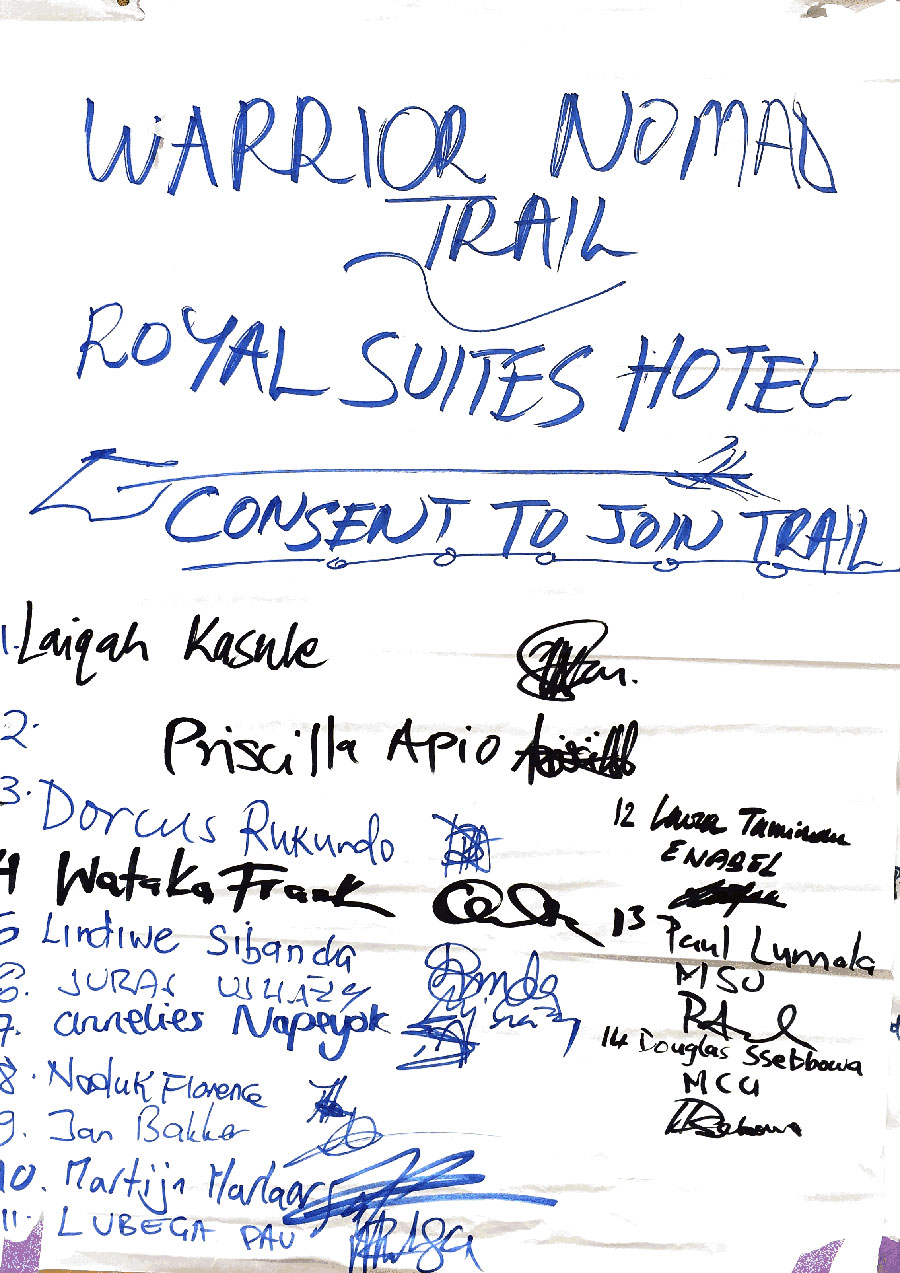 WARRIOR NOMAD
TRAIL
ROYAL SUITES HOTEL
CONSENT TO JOIN TRAIL
1. Laiqah Kasule
2. Priscilla Apio
3. Dorcus Rukundo
4 Wataka Frank
5 Lindiwe Sibanda
6. JURAS
7. annelies Napeyok
8. Noduk Florence
9. Jan Bakker
10. Martijn Marlaars
11. LUBEGA PAU
12 Laura
ENABEL
13 Paul Lumala
MSU
14 Douglas Ssebbowa
MCU